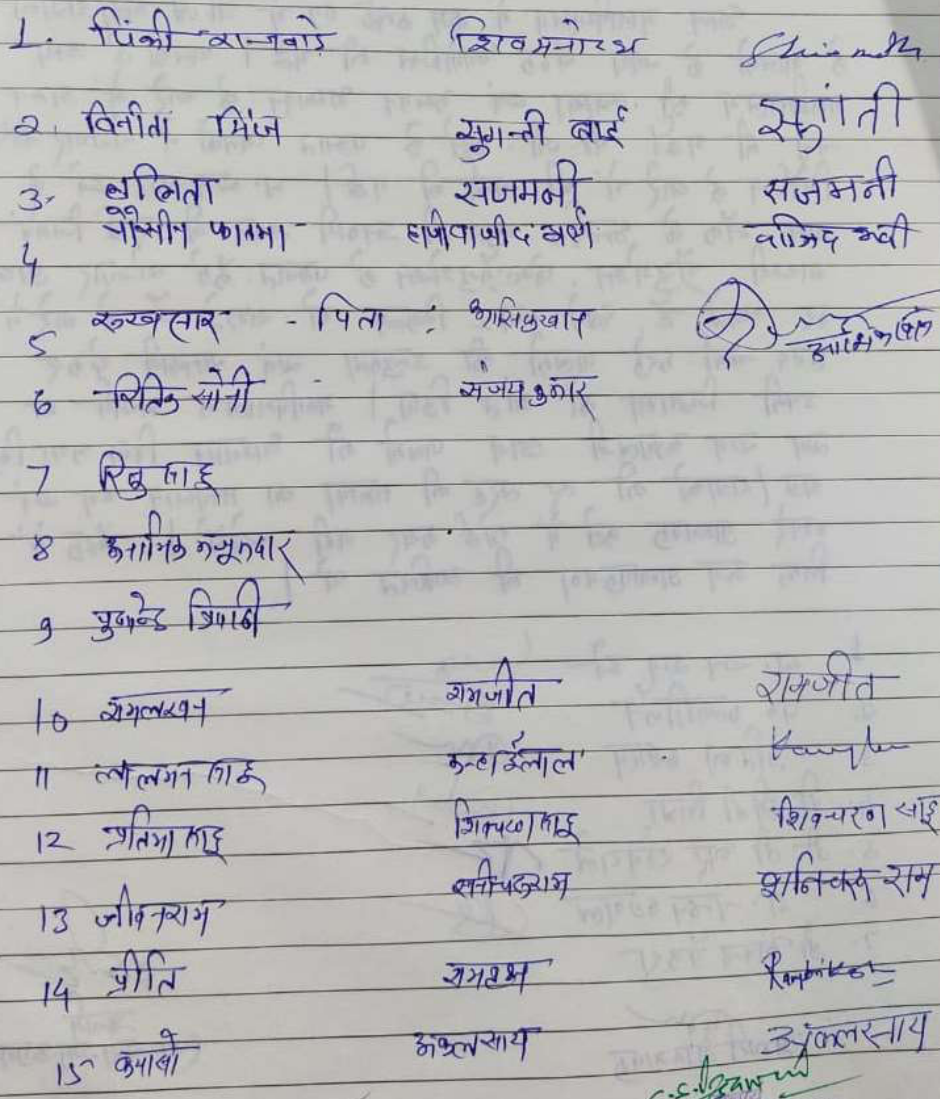 1. पिंकी राजवाड़े शिवमनोरथ
2. विनीता मिंज सुगन्ती बाई सुगंती
3. ललिता सजमनी सजमनी
4 फातमा
5 रुखसार - पिता आसिक खान
6 रितिक सोनी संजय कुमार
7 रितु साहू
8 अनामिक मजूमदार
9 त्रिपाठी
10 रामलखन रामजीत रामजीत
11 लालमन साहू कन्हाईलाल
12 प्रतिमा साहू शिवचरण साहू शिवचरण साहू
13 जीवनराम शनिचरराम शनिचर राम
14 प्रीति रामवृक्ष
15 अंकलसाय अंकलसाय